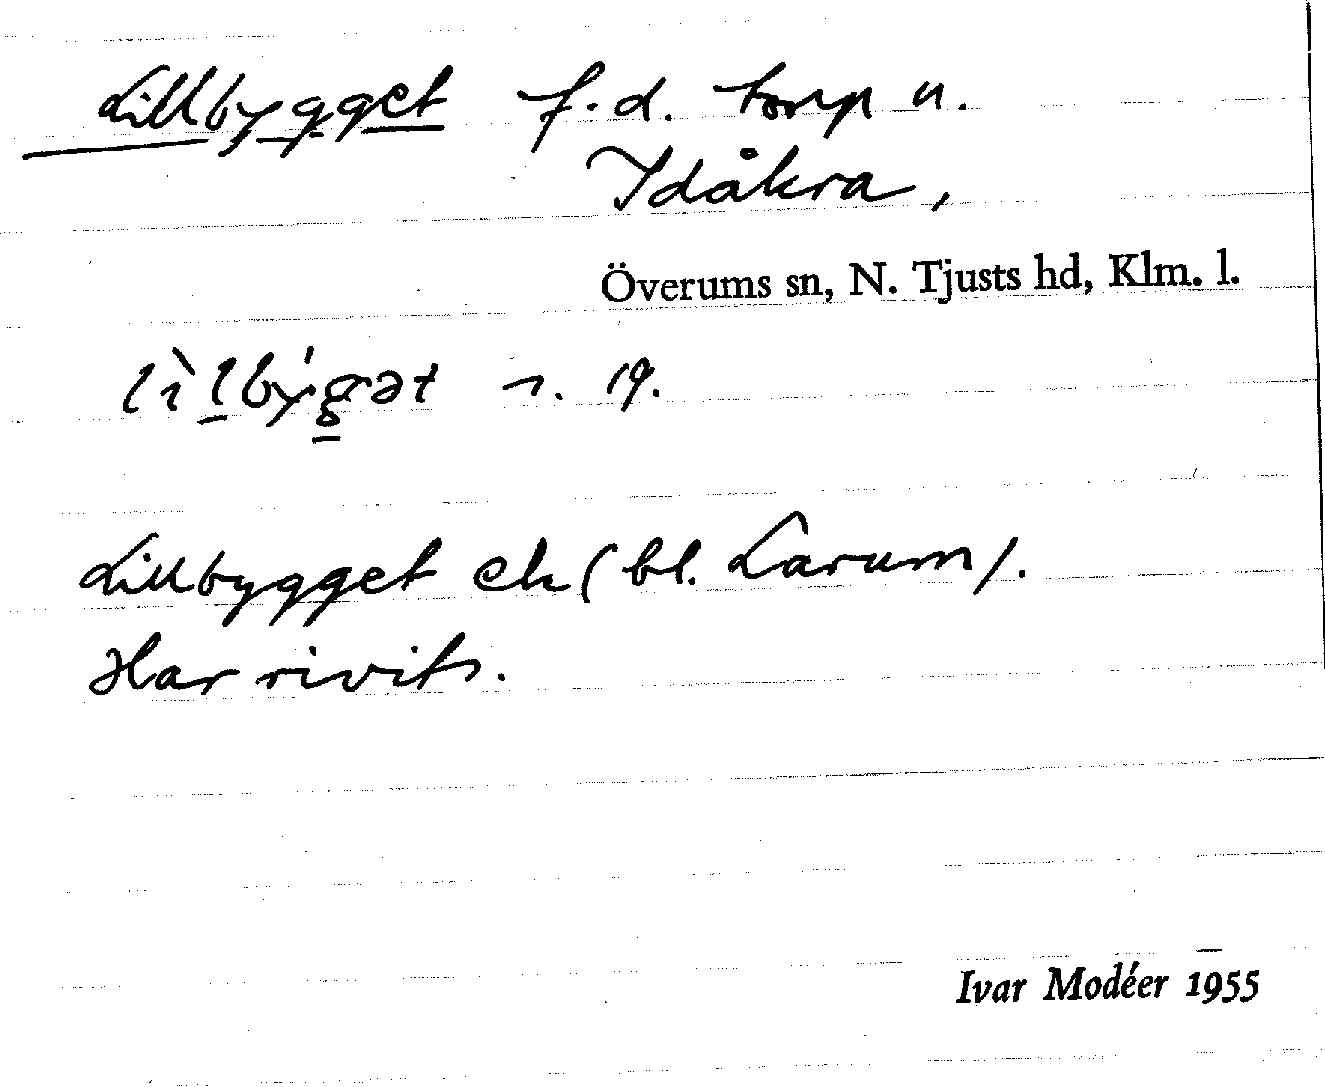 Lillbygget f.d. torp u.
Idåkra,
Överums sn, N. Tjusts hd, Klm. l.
lìlbýgət n. 19.
Lillbygget ek (bl. Larum).
Har rivits.
Ivar Modéer 1955